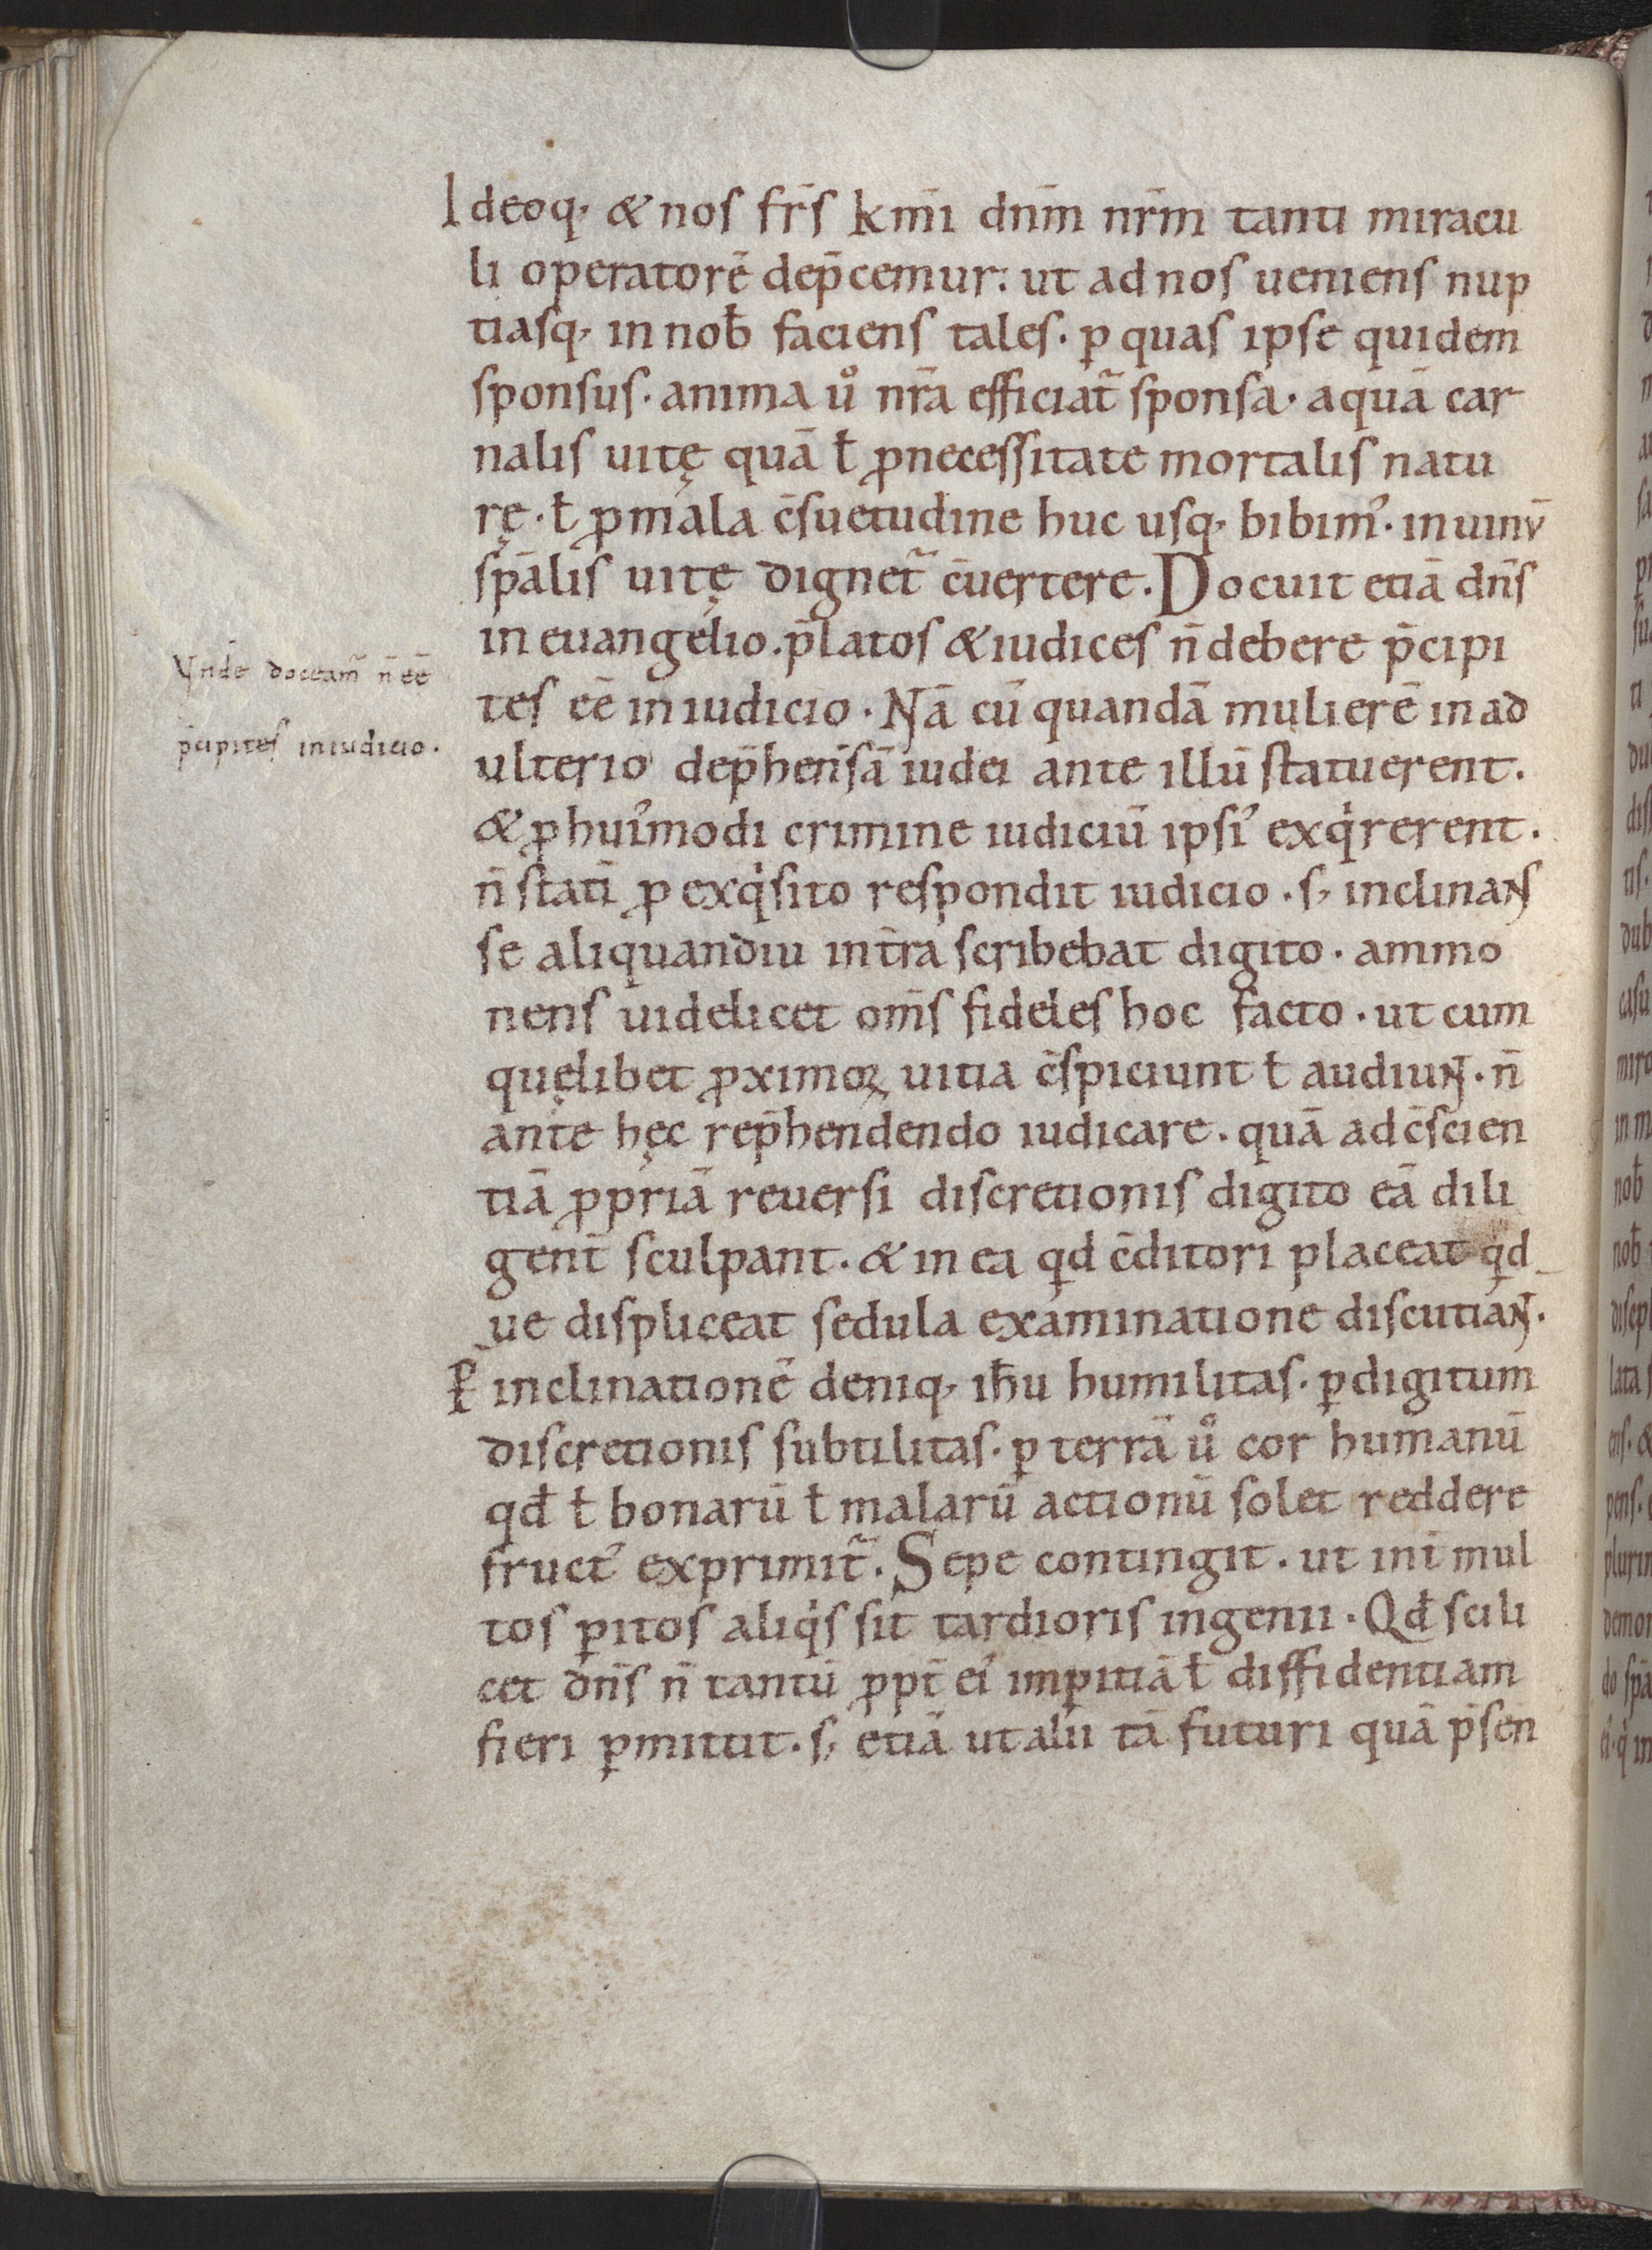 Ideoq; & nos fr̄s km̄i dn̄m nr̄m tanti miracu
li operatorē dep̄cemur: ut ad nos ueniens nup
tiasq; in nob̄ faciens tales · ꝑ quas ipse quidem
sponsus · anima ů nr̄a efficiat̄ sponsa · aquā car
nalis uitę quā ł ꝓ necessitate mortalis natu
rę · ł ꝓ mala c̄suetudine huc usq; bibimꝰ · in uinū
sp̄alis uitę dignet̄ c̄uertere. Docuit etiā dn̄s
in euangelio. p̄latos & iudices n̄ debere p̄cipi
Vnde doceam̄ n̄ eē
tes eē in iudicio · Nā cū quandā mulierē in ad
p̄cipites in iudicio.
ulterio dep̄hensā iudei ante illū statuerent.
& ꝓ huiꝰmodi crimine iudiciū ipsiꝰ exqͥrerent.
n̄ statī ꝓ exqͥsito respondit iudicio · s; inclinans
se aliquandiu in t̄ra scribebat digito · ammo
nens uidelicet om̄s fideles hoc facto · ut cum
quęlibet ꝓximoꝝ uitia c̄spiciunt ł audiunt · n̄
ante hęc rep̄hendendo iudicare · quā ad c̄scien
tiā ꝓpriā reuersi discretionis digito eā dili
gent̄ sculpant · & in ea qͥd c̄ditori placeat qͥd
ue displiceat sedula examinatione discutiant.
Ꝑ inclinationē deniq; ih̄u humilitas · ꝑ digitum
discretionis subtilitas · ꝑ terrā ů cor humanū
qd̄ ł bonarū ł malarū actionū solet reddere
fructꝰ exprimit̄. Sepe contingit · ut int̄ mul
tos ꝑitos aliqͥs sit tardioris ingenii · Qd̄ scili
cet dn̄s n̄ tantū ꝓpt̄ eiꝰ imꝑitiā ł diffidentiam
fieri ꝑmittit · s; etiā ut alii tā futuri quā p̄sen